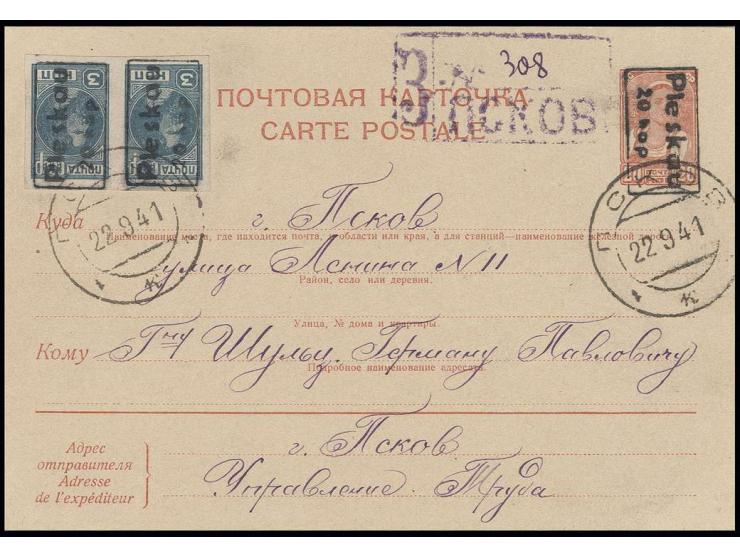 З. № 308
ПСКОВ
Pleskau
20 kop
Pleskau
20 kop
Pleskau
20 kop
ПОЧТОВАЯ КАРТОЧКА
CARTE POSTALE
ПСКОВ
22 9 41
ПСКОВ
22 9 41
Куда г. Псков
Наименование места, где находится почта, и области или края, а для станций—наименование железной дороги
улица Ленина N 11
Район, село или деревня.
Улица, № дома и квартиры.
Кому Г-ну Шульц Герману Павловичу
Подробное наименование адресата.
Адрес
отправителя
Adresse
de l'expéditeur
г. Псков
Управление Труда